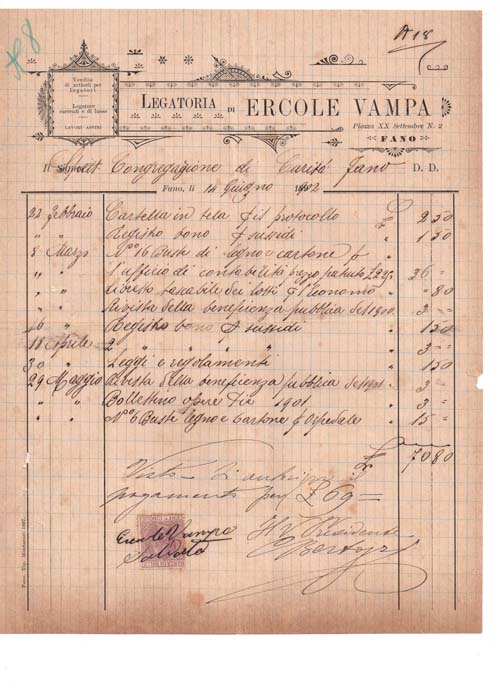 N 8
A 18
Vendita
di articoli per
legatori
Legature
correnti e di lusso
LAVORI AFFINI
LEGATORIA DI ERCOLE VAMPA
Piazza XX Settembre N. 2
FANO
Il Spett. Congregazione di Carità Fano D. D.
Fano, li 14 Giugno 1902
22 Febbraio Cartella in tela p il protocollo £ 2 50
" " Registro bono p sussidi " 1 50
8 Marzo N° 16 Buste di legno e cartone p
" " l'ufficio di contabilità prezzo patuito " 36 =
" " " 80
" " Rivista della beneficenza pubblica del 1900 " 3 =
10 " Registro bono p sussidi " 1 50
18 Aprile 2 " " " " " 3 =
30 " Leggi e regolamenti " 1 50
29 Maggio Rivista della beneficenza pubblica del 1901 " 3 =
" " Bollettino opere Pie 1901 " 3 =
" " N° 6 Buste legno e cartone p Ospedale " 15 =
£ 70 80
Visto Si autorizza il
pagamento per £ 69 =
Ercole Vampa
Saldato
Il Presidente
Fano, Tip. Montanari 1897.